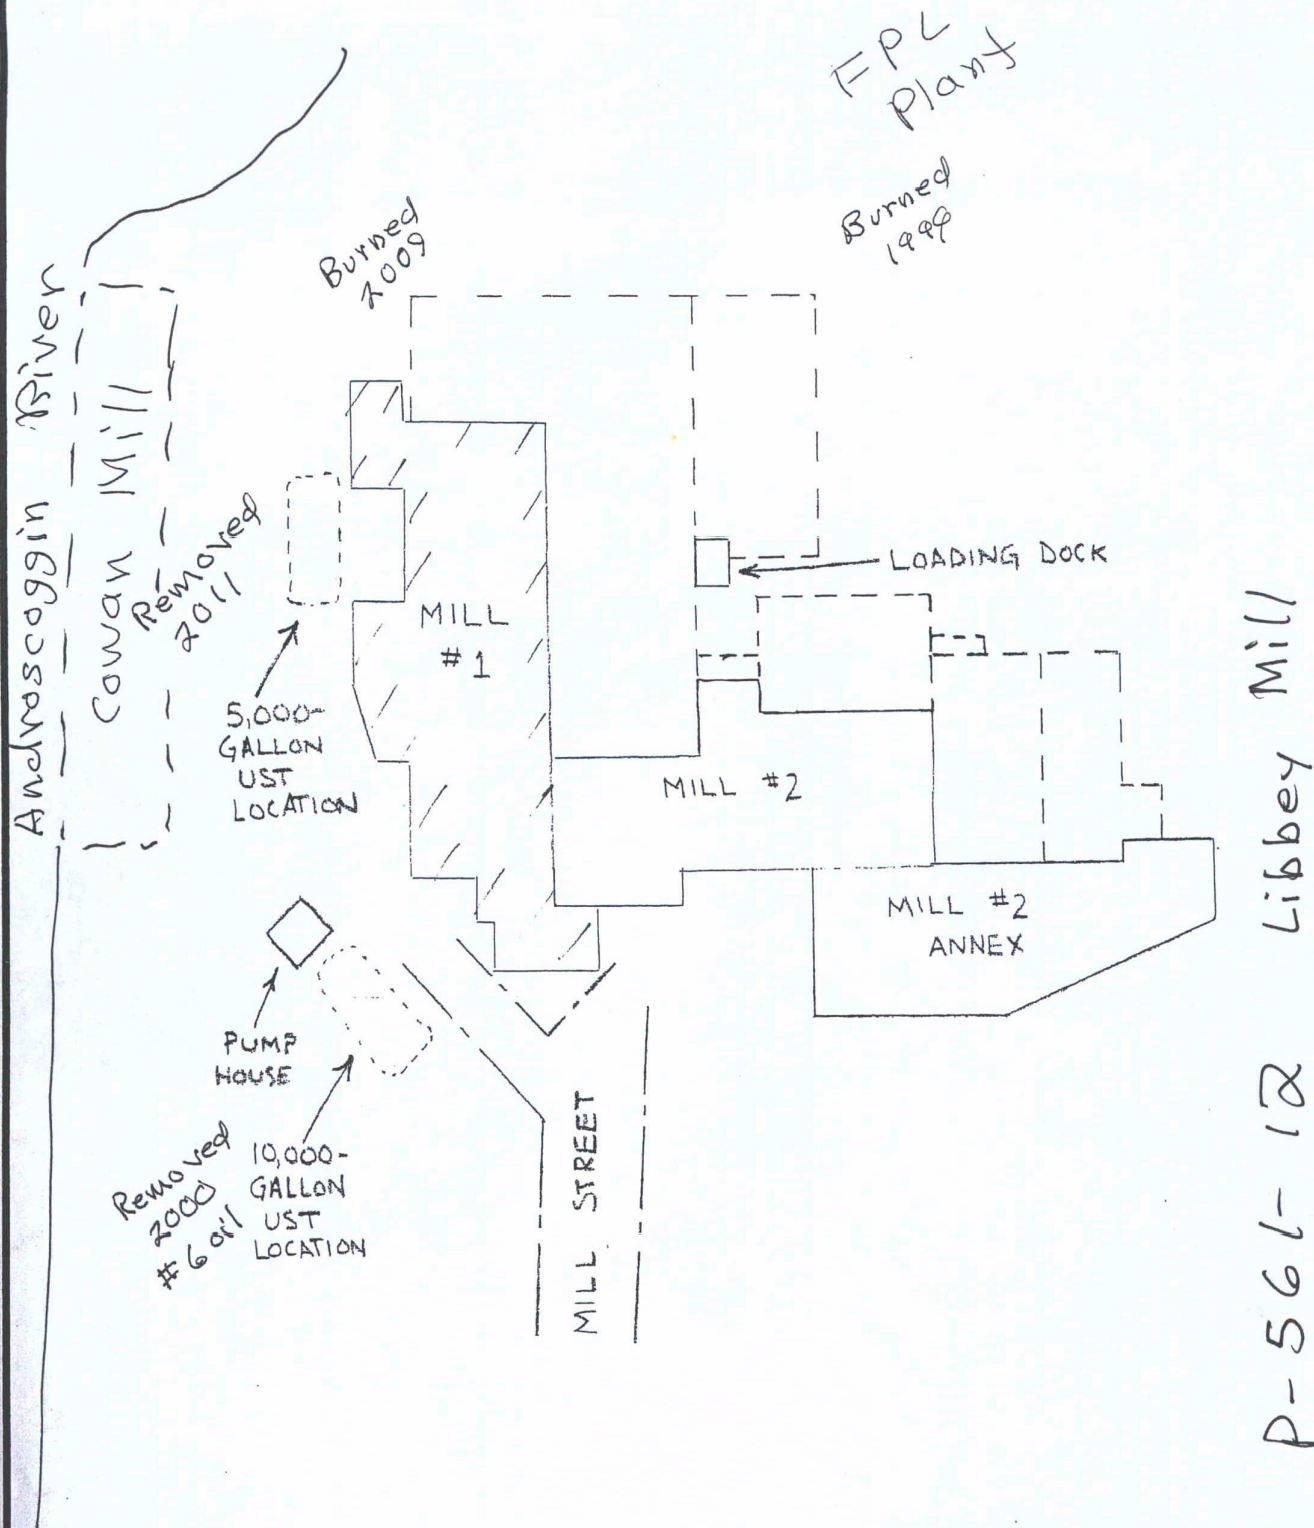 FPL
Plant
Burned
1999
Burned
2009
Androscoggin River
Cowan Mill
Removed
2011
LOADING DOCK
MILL
#1
5,000-
GALLON
UST
LOCATION
MILL #2
MILL #2
ANNEX
PUMP
HOUSE
Removed
2000
#6 oil
10,000-
GALLON
UST
LOCATION
MILL STREET
P-561-12 Libbey Mill